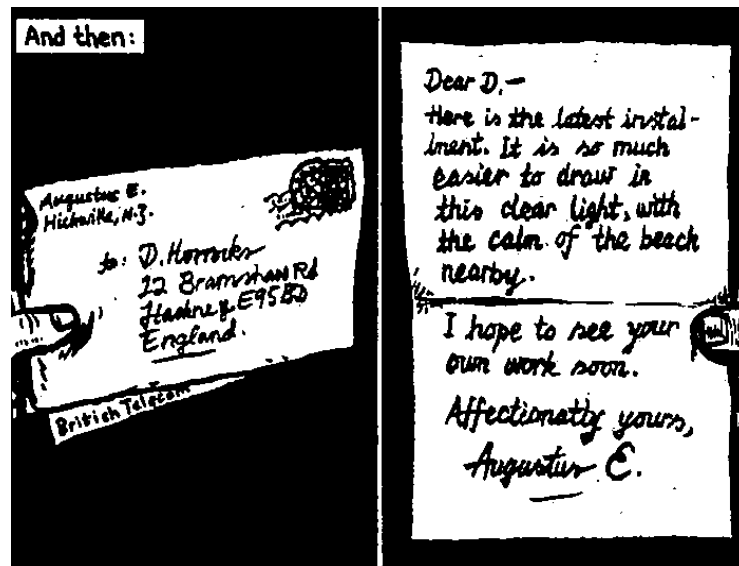 And then:
Augustus E.
Hicksville, N.Z.
to: D. Horrocks
22 Bramshaw Rd
Hackney E95BD
England.
British Telecom
Dear D.—
Here is the latest instal-
lment. It is so much
easier to draw in
this clear light, with
the calm of the beach
nearby.
I hope to see your
own work soon.
Affectionatly yours,
Augustus E.